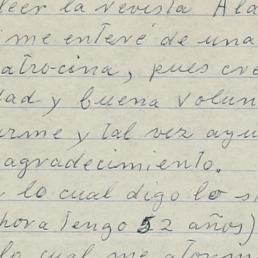 leer la revista Ala
me enteré de una
atrocina, pues cre
dad y buena volun
arme y tal vez ayu
agradecimiento.
lo cual digo lo s
hora tengo 52 años)
lo cual me atorm